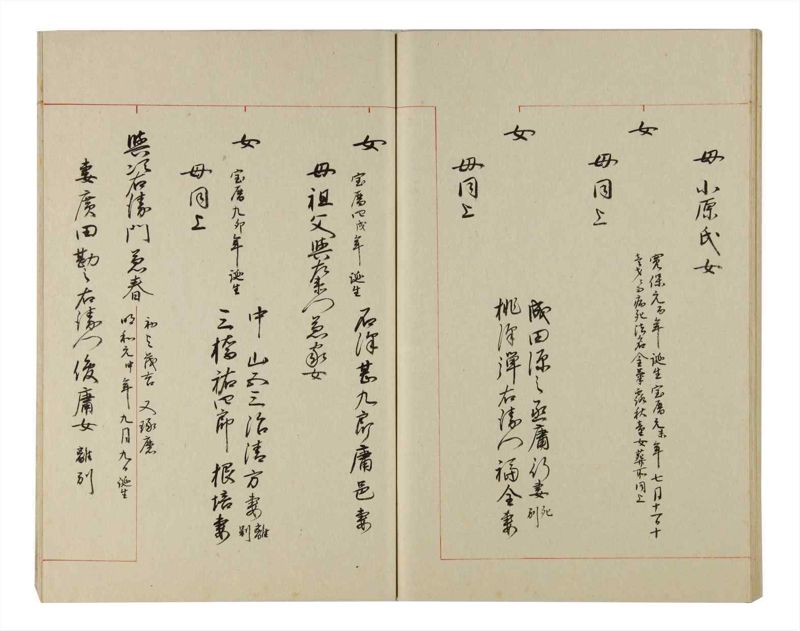 母小原氏女
女
寛保元酉年誕生宝暦元未年七月十一日十
一才ニ而病死法名金華露秋童女葬所同上
母同上
女
成田源之丞庸行妻死別
桃沢弾右衛門福全妻
母同上
女
宝暦四戌年誕生
石沢甚九郎庸邑妻
母祖父與左衛門為家女
女
宝暦九卯年誕生
中山五三治清方妻離別
三橋祐四郎根培妻
母同上
與次右衛門為春
初之茂吉又琢磨
明和元申年九月九日誕生
妻廣田勘之右衛門俊庸女離別